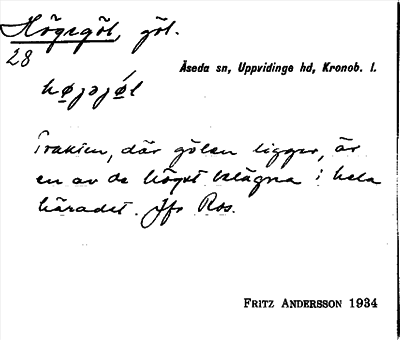 Högegöl, göl.
28
Åseda sn, Uppvidinge hd, Kronob. l.
højəjøl
Trakten, där gölen ligger, är
en av de högst belägna i hela
häradet. Jfr Ros.
FRITZ ANDERSSON 1934